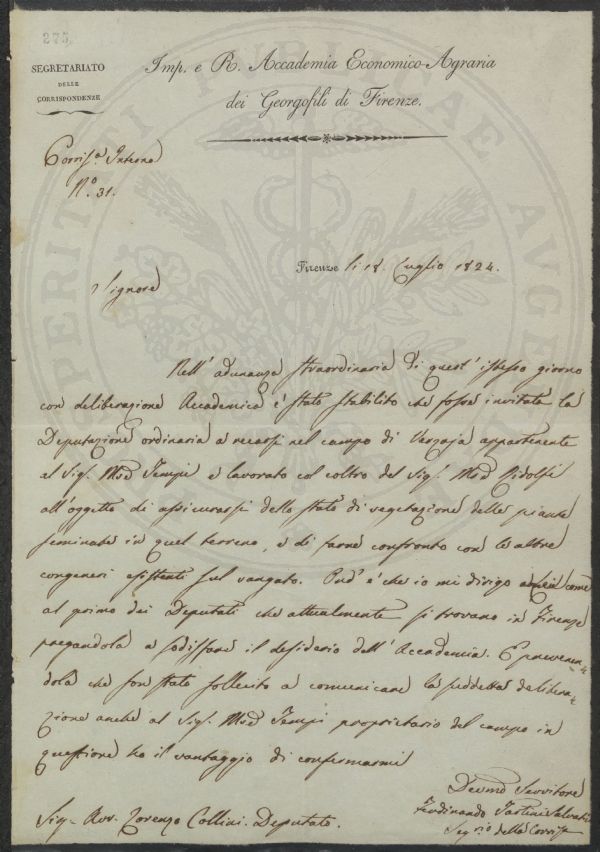 275.
SEGRETARIATO
DELLE
CORRISPONDENZE
Imp. e R. Accademia Economico-Agraria
dei Georgofili di Firenze.
Corrisp.a Interna
N.o 31.
Firenze li 18. Luglio 1824.
Signore
Nell' adunanza straordinaria di quest' istesso giorno
con deliberazione Accademica è stato stabilito che fosse invitata la
Deputazione ordinaria a recarsi nel campo di Varzaja appartenente
al Sig.r Mse Tempi e lavorato col coltro del Sig.r Mse Ridolfi
all'oggetto di assicurarsi dello stato di vegetazione delle piante
seminate in quel terreno, e di farne confronto con le altre
congeneri esistenti sul vangato. Quind' è che io mi dirigo a Lei come
al primo dei Deputati che attualmente si trovano in Firenze
pregandola a sodisfare il desiderio dell' Accademia. E prevenen-
dola che son stato sollecito a comunicare la suddetta delibera-
zione anche al Sig.r Mse Tempi proprietario del campo in
questione ho il vantaggio di confermarmi
Devmo Servitore
Ferdinando Tartini Salvatici
Seg.rio delle Corrisp.
Sig.r Avv. Lorenzo Collini. Deputato.
PERITAT PUBLICAE AUGEN